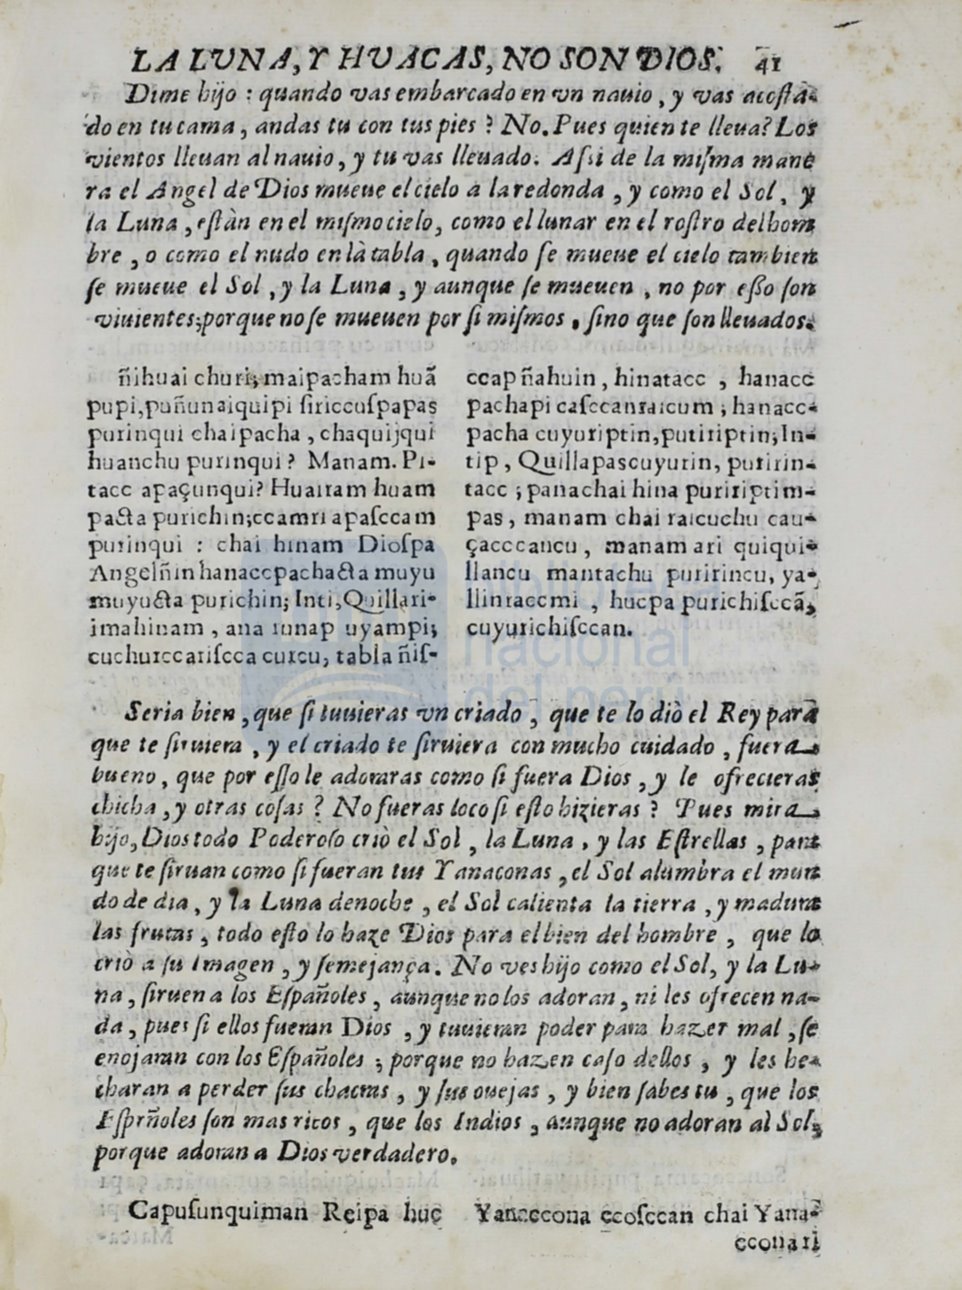 LA LUNA, Y HVACAS, NO SON DIOS. 41
Dime hijo : quando vas embarcado en vn nauio, y vas acostā-
do en tu cama, andas tu con tus pies ? No. Pues quien te lleua? Los
vientos lleuan al nauio, y tu vas lleuado. Assi de la misma mane
ra el Angel de Dios mueue el cielo a la redonda, y como el Sol, y
la Luna, estàn en el mismo cielo, como el lunar en el rostro del hom
bre, o como el nudo en là tabla, quando se mueue el cielo tambien
se mueue el Sol, y la Luna, y aunque se mueuen, no por esso son
viuientes; porque no se mueuen por si mismos, sino que son lleuados.
ñihuai churi; maipacham huã
pupi, puñunaiquipi siriccuspapas
purinqui chaipacha, chaquijqui
huanchu purinqui? Manam. Pi-
tacc apaçunqui? Huairam huam
pacta purichin; ccamri apasccam
purinqui : chai hinam Diospa
Angelñin hanaccpachacta muyu
muyucta purichin; Inti, Quillari-
imahinam, ana runap uyampi;
cuchurccariscca curcu, tabla ñis-
ccap ñahuin, hinatacc, hanacc
pachapi casccanraicum; hanacc-
pacha cuyuriptin, puririptin; In-
tip, Quillapascuyurin, puririn-
tacc; panachai hina puririptim-
pas, manam chai raicuchu cau-
çacccancu, manam ari quiqui-
llancu mantachu puririncu, ya-
llinraccmi, hucpa purichisccã,
cuyurichisccan.
Seria bien, que si tuuieras vn criado, que te lo diò el Rey para
que te siruiera, y el criado te siruiera con mucho cuidado, fuera
bueno, que por esso le adoraras como si fuera Dios, y le ofrecieras
chicha, y otras cosas ? No fueras loco si esto hizieras ? Pues mira
hijo, Dios todo Poderoso criò el Sol, la Luna, y las Estrellas, para
que te siruan como si fueran tus Yanaconas, el Sol alumbra el mun
do de dia, y la Luna denoche, el Sol calienta la tierra, y madura
las frutas, todo esto lo haze Dios para el bien del hombre, que lo
criò a su Imagen, y semejança. No ves hijo como el Sol, y la Lu-
na, siruen a los Españoles, aunque no los adoran, ni les ofrecen na-
da, pues si ellos fueran Dios, y tuuieran poder para hazer mal, se
enojaran con los Españoles; porque no hazen caso dellos, y les he-
charan a perder sus chacras, y sus ouejas, y bien sabes tu, que los
Esprñoles son mas ricos, que los Indios, aunque no adoran al Sol,
porque adoran a Dios verdadero.
Capusunquiman Reipa huc
Yanaccona ccosccan chai Yana-
cconari
nacional
del perú